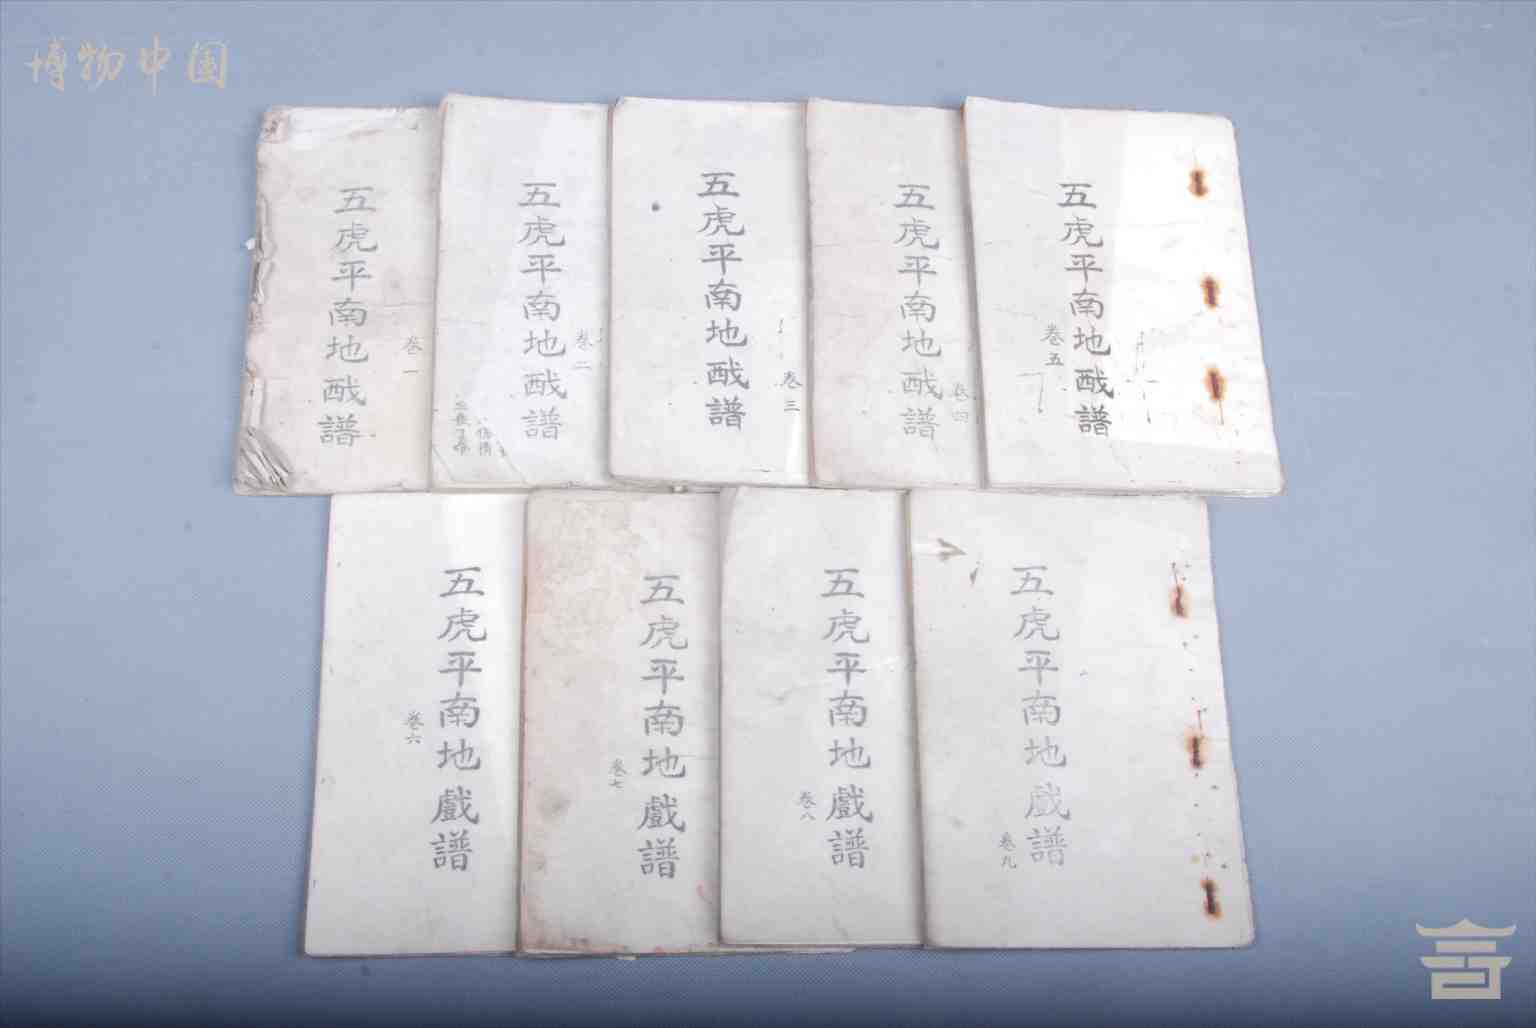 博物中国
五虎平南地戝譜
卷一
五虎平南地戝譜
卷二
五虎平南地戝譜
卷三
五虎平南地戝譜
卷四
五虎平南地戝譜
卷五
五虎平南地戲譜
卷六
五虎平南地戲譜
卷七
五虎平南地戲譜
卷八
五虎平南地戲譜
卷九